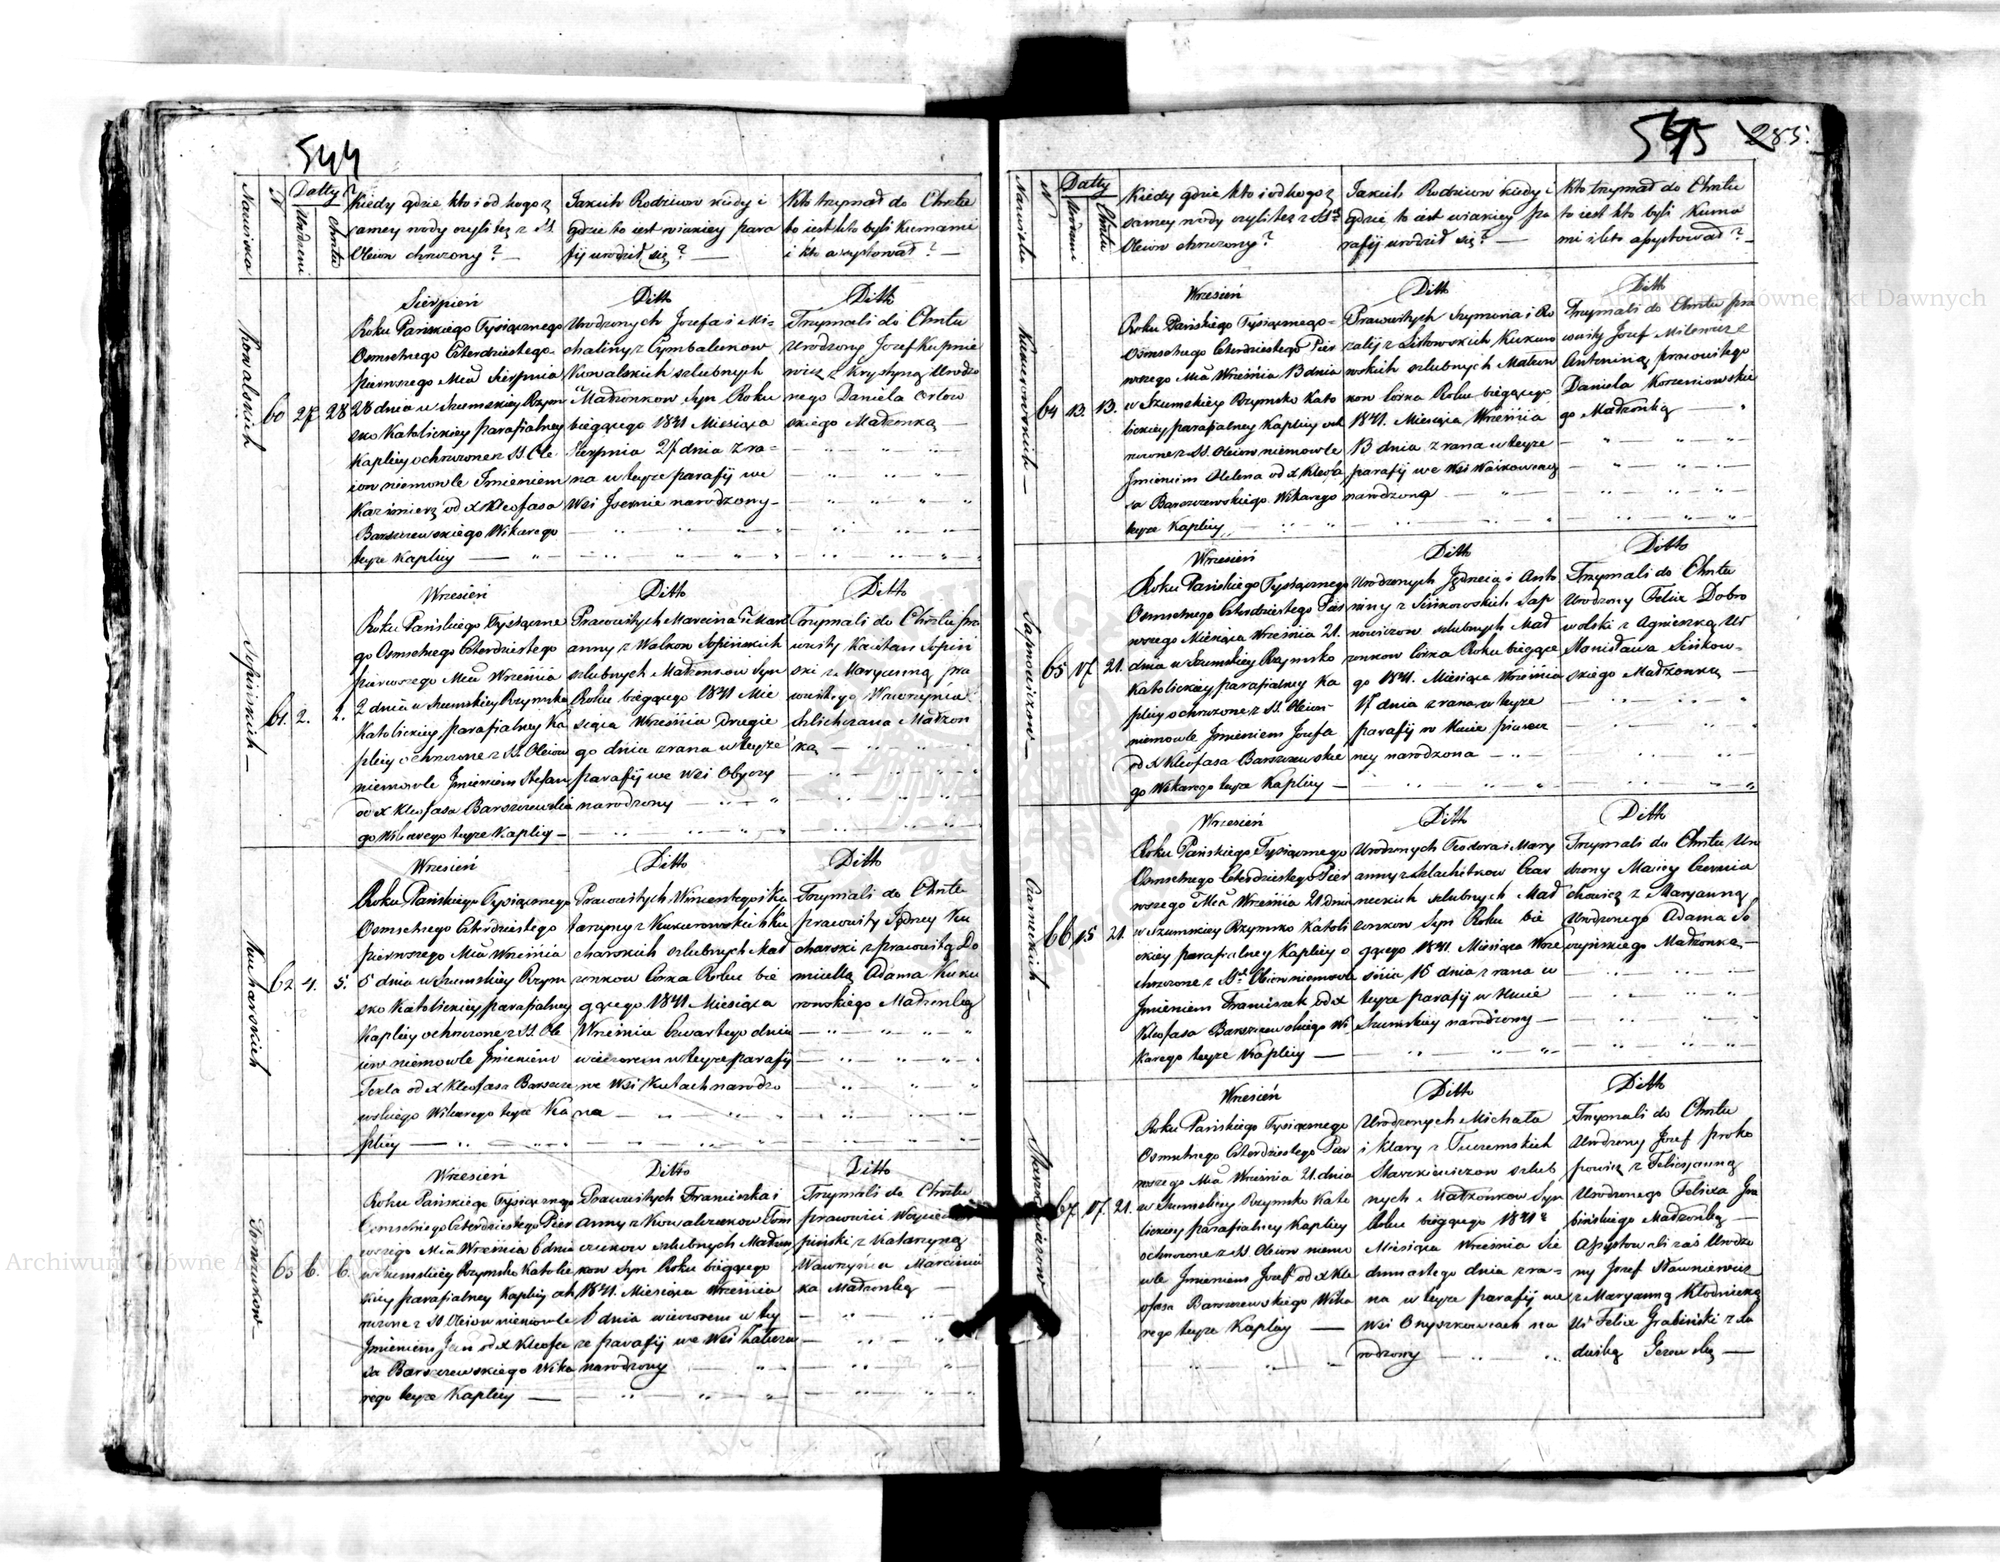 544
Nazwiska
N
Datty
Urodzeni
Chrztu
Kiedy gdzie kto i od kogo z
samey wody czyli też z SS.
Oleiow chrzczony? —
Jakich Rodziców kiedy i
gdzie to iest w iakiey para
fij urodził się? —
Kto trzymał do Chrztu
to iest kto byli Kumami
i kto asystował? —
Kowalskich
60
27
28
Sierpień
Roku Pańskiego Tysiącznego
Osmsetnego Czterdziestego
pierwszego Mca Sierpnia
28 dnia w Szumskiey Rzym
sko Katolickiey parafialney
Kaplicy ochrzczone z SS. Ole
iow niemowle Imieniem
Kazimierz od X Kleofasa
Barszczewskiego Wikarego
teyze Kaplicy —
Ditto
Urodzonych Jozefa i Mi-
chaliny z Cymbalukow
Kowalskich szlubnych
Małżonkow Syn Roku
biegącego 1841 Miesiąca
Sierpnia 27 dnia z ra-
na w teyze parafij we
Wsi narodzony —
Ditto
Trzymali do Chrztu
Urodzony Jozef Kupnie
wicz z Krystyną Urodzo
nego Daniela Orłow
skiego Małżonką
61.
2.
2.
Wrzesień
Roku Pańskiego Tysiączne
go Osmsetnego Czterdziestego
pierwszego Mca Wrzesnia
2 dnia w Szumskiey Rzymsko
Katolickiey parafialney Ka
plicy ochrzczone z SS. Oleiow
niemowle Imieniem Stefan
od X Kleofasa Barszczewskie
go Wikarego teyze Kaplicy —
Ditto
Prawowitych Marcina i Mary
anny z Walkow Sopinskich
szlubnych Małżonkow Syn
Roku biegącego 1841 Mie
siąca Wrzesnia Drugie
go dnia zrana w teyze
parafij we Wsi Obyczy
narodzony —
Ditto
Trzymali do Chrztu pra
cowity Kaietan Sopiń
ski z Maryanną pra
cowitego Wawrzynca
Szlichciana Małżon
ką —
Kucharskich
62
4.
5.
Wrzesień
Roku Pańskiego Tysiącznego
Osmsetnego Czterdziestego
pierwszego Mca Wrzesnia
5 dnia w Szumskiey Rzym
sko Katolickiey parafialney
Kaplicy ochrzczone z SS. Ole
iow niemowle Imieniem
Tekla od X Kleofasa Barszcze
wskiego Wikarego teyze Ka
plicy —
Ditto
Pracowitych Wincentego i Ka
tarzyny z Kukurowskich Ku
charskich szlubnych Mał
zonkow Corka Roku bie
gącego 1841 Miesiąca
Wrzesnia Czwartego dnia
wieczorem w teyze parafij
we Wsi Kutach narodzo
na —
Ditto
Trzymali do Chrztu
pracowity Jędrzey Ku
charski z pracowitą Do
micellą Adama Kuku
rowskiego Małżonką
Tomczukow —
63
6.
6.
Wrzesień
Roku Pańskiego Tysiącznego
Osmsetnego Czterdziestego Pier
wszego Mca Wrzesnia 6 dnia
w Szumskiey Rzymsko Katolic
kiey parafialney Kaplicy och
rzczone z SS Oleiow niemowle
Imieniem Jan od X Kleofa
sa Barszczewskiego Wika
rego teyze Kaplicy —
Ditto
Pracowitych Franciszka i
Anny z Kowalczukow Tom
czukow szlubnych Małżon
kow Syn Roku biegącego
1841. Miesiąca Wrzesnia
6 dnia wieczorem w tey
ze parafij we Wsi
narodzony
Ditto
Trzymali do Chrztu
pracowici
z Katarzyną
Wawrzyńca Marciniu
ka Małżonką
545
285.
Nazwiska
N
Datty
Urodzeni
Chrztu
Kiedy gdzie kto i od kogo z
samey wody czyli też z SSch
Oleiow chrzczony?
Jakich Rodziców kiedy i
gdzie to iest w iakiey pa
rafij urodził się? —
Kto trzymał do Chrztu
to iest kto byli Kuma
mi i kto asystował? —
Kukurowskich —
64
13.
13.
Wrzesień
Roku Pańskiego Tysiącznego
Osmsetnego Czterdziestego Pier
wszego Mca Wrzesnia 13 dnia
w Szumskiey Rzymsko Kato
lickiey parafialney Kaplicy och
rzczone z SS. Oleiow niemowle
Imieniem Helena od X Kleofa
sa Barszczewskiego Wikarego
teyze Kaplicy
Ditto
Pracowitych Szymona i Ro
zalij z Litowskich Kukuro
wskich szlubnych Małżon
kow Corka Roku biegącego
1841. Miesiąca Wrzesnia
13 dnia z rana w teyze
parafij we Wsi
narodzona
Ditto
Trzymali do Chrztu pra
cowity Jozef Milewicz z
Antoniną pracowitego
Daniela Korzeniowskie
go Małżonką —
Sapnowiczow —
65
17.
21.
Wrzesień
Roku Pańskiego Tysiącznego
Osmsetnego Czterdziestego Pier
wszego Miesiąca Wrzesnia 21.
dnia w Szumskiey Rzymsko
Katolickiey parafialney Ka
plicy ochrzczone z SS. Oleiow
niemowle Imieniem Jozefa
od X Kleofasa Barszczewskie
go Wikarego teyze Kaplicy —
Ditto
Urodzonych Jędrzeia i Anto
niny z Sinkowskich Sap
nowiczow szlubnych Mał
zonkow Corka Roku biegące
go 1841. Miesiąca Wrzesnia
17 dnia z rana w teyze
parafij w Hucie
narodzona —
Ditto
Trzymali do Chrztu
Urodzony Felix Dobro
wolski z Agnieszką Ur
Stanisława Sinkow-
skiego Małżonką —
Czarneckich —
66
15
21.
Wrzesień
Roku Pańskiego Tysiącznego
Osmsetnego Czterdziestego Pier
wszego Mca Wrzesnia 21 dnia
w Szumskiey Rzymsko Katoli
ckiey parafialney Kaplicy o
chrzczone z SS. Oleiow niemowle
Imieniem Franciszek od X
Kleofasa Barszczewskiego Wi
karego teyze Kaplicy —
Ditto
Urodzonych Teodora i Mary
anny z Szlachitkow Czar
neckich szlubnych Mał
zonkow Syn Roku bie
gącego 1841. Miesiąca Wrze
śnia 15 dnia z rana w
teyze parafij w Hucie
Szumskiey narodzony —
Ditto
Trzymali do Chrztu Uro
dzony Maciey Czernia
chowicz z Maryanną
Urodzonego Adama So
czyńskiego Małżonką —
67
17.
21.
Wrzesień
Roku Pańskiego Tysiącznego
Osmsetnego Czterdziestego Pier
wszego Mca Wrzesnia 21. dnia
w Szumskiey Rzymsko Kato
lickiey parafialney Kaplicy
ochrzczone z SS Oleiow niemo
wle Imieniem Jozef od X Kle
ofasa Barszczewskiego Wika
rego teyze Kaplicy —
Ditto
Urodzonych Michała
i Klary z Tuczemskich
Starzkiewiczow szlub
nych Małżonkow Syn
Roku biegącego 1841o
Miesiąca Wrzesnia Sie
dmnastego dnia z ra-
na w teyze parafij we
Wsi Onyszkowcach na
rodzony
Ditto
Trzymali do Chrztu
Urodzony Jozef Proko
powicz z Felicyanną
Urodzonego Felixa Gra
bińskiego Małżonką —
Asystowali zaś Urodzo
ny Jozef Stawniewicz
z Maryanną Kłodnicką
Ur Felix Grabiński z

Archiwum Główne Akt Dawnych
Archiwum Główne Akt Dawnych